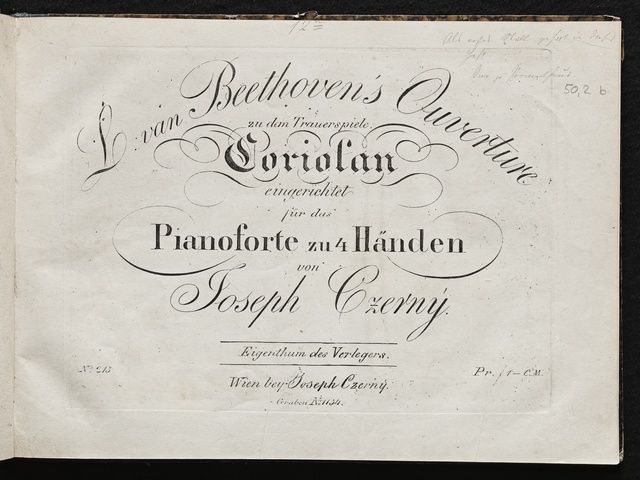 12
50,2 b
L. van Beethoven's Ouverture
zu dem Trauerspiele:
Coriolan
eingerichtet
für das
Pianoforte zu 4 Händen
von
Joseph Czerný.
Eigenthum des Verlegers.
No. 215
Pr. f 1 – C.M.
Wien bey Joseph Czerný.
Graben No. 1134.